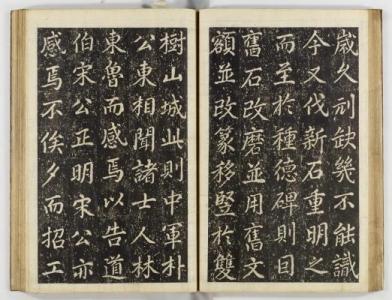 歲久刓缺幾不能識
今又伐新石重明之
而至於種德碑則因
舊石改磨並用舊文
額並改篆移竪於雙
樹山城此則中軍朴
公東相聞諸士人林
東魯而感焉以告道
伯宋公正明宋公亦
感焉不俟夕而招工